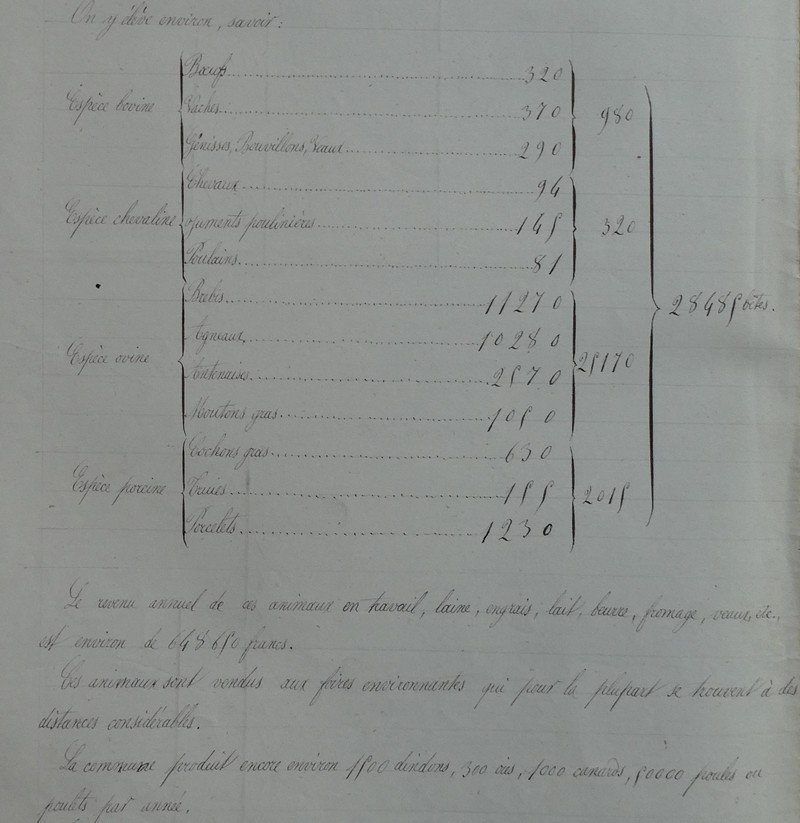 On y élève environ, savoir :
Espèce bovine
Bœufs 320
Vaches 370
Génisses, Bouvillons, Veaux 290
980
Espèce chevaline
Chevaux 94
Juments poulinières 145
Poulains 81
320
Espèce ovine
Brebis 11270
Agneaux 10280
Antenaises 2570
Moutons gras 1050
25170
Espèce porcine
Cochons gras 630
Truies 155
Porcelets 1230
2015
28485 bêtes.
Le revenu annuel de ces animaux en travail, laine, engrais, lait, beurre, fromage, veaux, etc.,
est environ de 648650 francs.
Ces animaux sont vendus aux foires environnantes qui pour la plupart se trouvent à des
distances considérables.
La commune produit encore environ 1500 dindons, 300 oies, 1000 canards, 50000 poules ou
poulets par année.